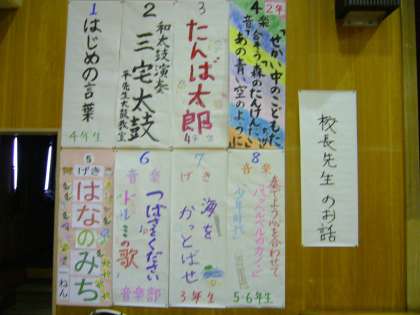 1
はじめの言葉
4年生
2
和太鼓演奏
三宅太鼓
平先生太鼓教室
3
たんば太郎
4年
4
音楽
2年
「せかい中のこどもたちが」
合そう「森のたんけんたい」
音「あの青い空のように」
5
げき
はなのみち
1ねん
6
音楽
つばさをください
ドレミの歌
音楽部
7
げき
海を
かっとばせ
3年生
8
音楽
奏でよう心を合わせて
「パッヘルベルのカノン」
5・6年生
校長先生のお話